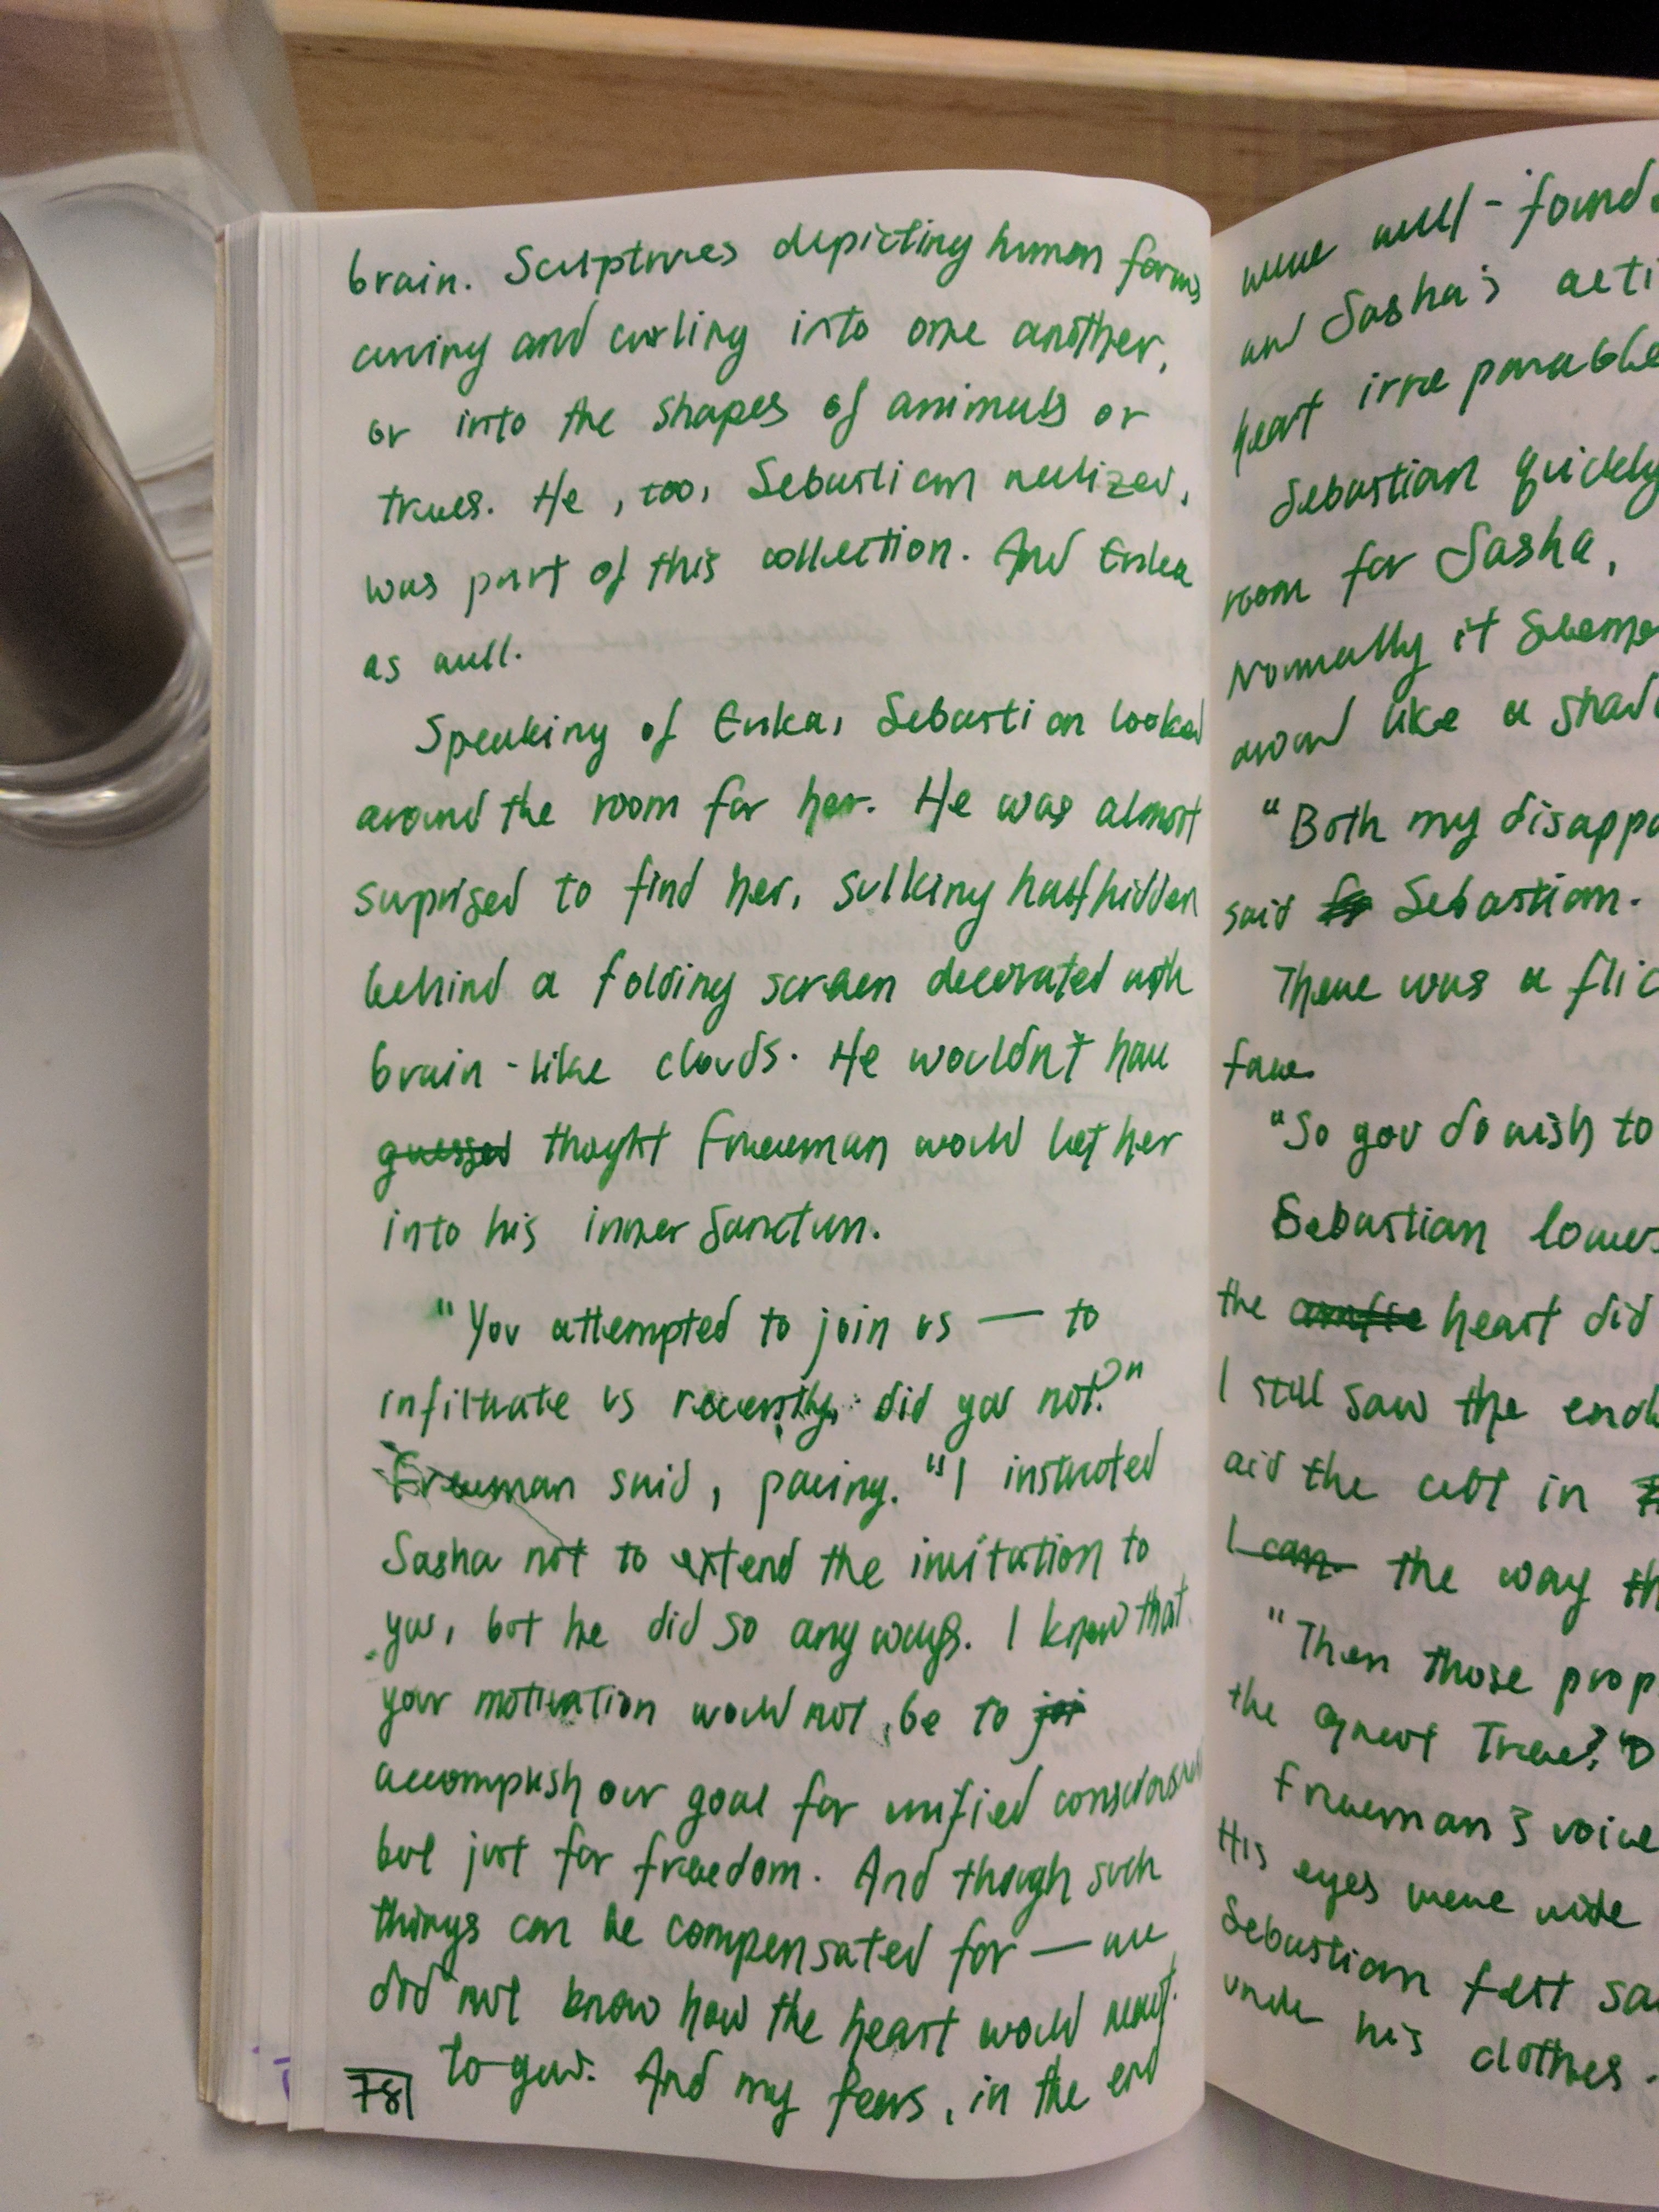 brain. Sculptures depicting human forms
curving and curling into one another,
or into the shapes of animals or
trees. He, too, Sebastian realized,
was part of this collection. And Eriska
as well.
Speaking of Eriska, Sebastian looked
around the room for her. He was almost
surprised to find her, sulking half hidden
behind a folding screen decorated with
brain-like clouds. He wouldn't have
guessed thought Freeman would let her
into his inner sanctum.
"You attempted to join us — to
infiltrate us recently, did you not?"
Freeman said, pacing. "I instructed
Sasha not to extend the invitation to
you, but he did so anyways. I knew that
your motivation would not be to joi
accomplish our goal for unified consciousness
but just for freedom. And though such
things can be compensated for — we
did not know how the heart would react
to you. And my fears, in the end
781
were well-found
and Sasha's acti
heart irreparable
Sebastian quickly
room for Sasha,
Normally it seeme
around like a shad
"Both my disappo
said Sebastian.
There was a flic
face.
"So you do wish to
Sebastian lowe
the heart did
I still saw the end
aid the cult in
I can the way th
"Then those prop
the great Tree?
Freeman's voice
His eyes were wide
Sebastian felt
under his clothes.